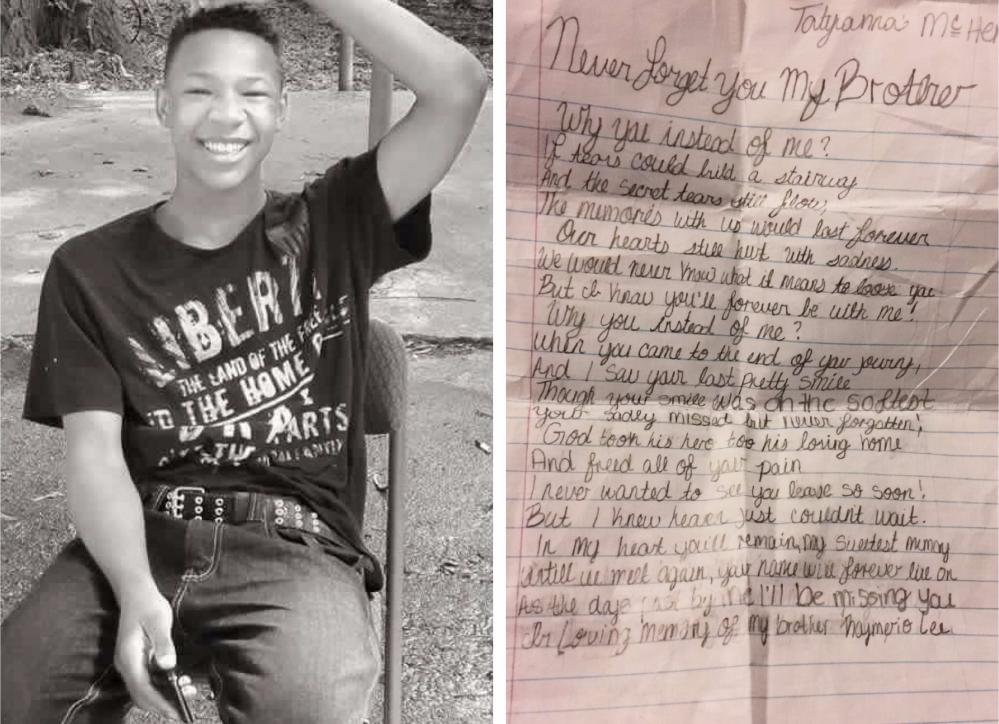 LIBERTY
THE LAND OF THE FREE
THE HOME
Tatyanna McHe
Never forget You My Brother
Why you instead of me?
If tears could build a stairway
And the secret tears still flow,
The memories with us would last forever
Our hearts still hurt with sadness.
We would never know what it means to loose you
But I know you'll forever be with me!
Why you instead of me?
When you came to the end of your journy,
And I saw your last pretty smile
Though your smile was on the softest
your sadly missed but never forgotten!
God took his hero too his loving home
And freed all of your pain
I never wanted to see you leave so soon!
But I knew heaven just couldnt wait.
In my heart you'll remain, my sweetest memory
Untill we meet again, your name will forever live on
As the days past by me I'll be missing you
In Loving memory of my brother Lee